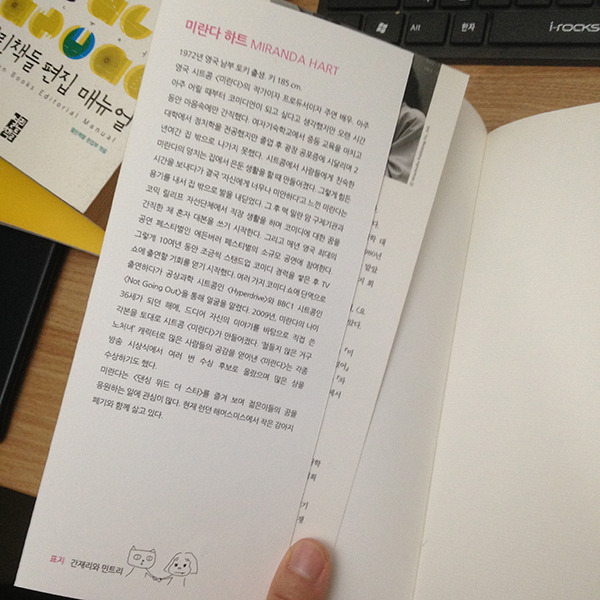 미란다 하트 MIRANDA HART
1972년 영국 남부 토키 출생. 키 185 cm.
영국 시트콤 〈미란다〉의 작가이자 프로듀서이자 주연 배우. 아주
아주 어릴 때부터 코미디언이 되고 싶다고 생각했지만 오랜 시간
동안 마음속에만 간직했다. 여자기숙학교에서 중등 교육을 마치고
대학에서 정치학을 전공했지만 졸업 후 광장 공포증에 시달리며 2
년여간 집 밖으로 나가지 못했다. 시트콤에서 사람들에게 친숙한
미란다의 망치는 집에서 은둔 생활을 할 때 만들어졌다. 그렇게 힘든
시간을 보내다가 결국 '자신에게 너무나 미안하다'고 느낀 미란다는
용기를 내서 집 밖으로 발을 내딛었다. 그 후 맥 밀란 암 구제기관과
코믹 릴리프 자선단체에서 직장 생활을 하며 코미디에 대한 꿈을
간직한 채 혼자 대본을 쓰기 시작한다. 그리고 매년 영국 최대의
공연 페스티벌인 에든버러 페스티벌의 소규모 공연에 참여한다.
그렇게 10여년 동안 조금씩 스탠드업 코미디 경력을 쌓은 후 TV
쇼에 출연할 기회를 얻기 시작했다. 여러 가지 코미디 쇼에 단역으로
출연하다가 공상과학 시트콤인 〈Hyperdrive〉와 BBC1 시트콤인
〈Not Going Out〉을 통해 얼굴을 알렸다. 2009년, 미란다의 나이
36세가 되던 해에, 드디어 자신의 이야기를 바탕으로 직접 쓴
각본을 토대로 시트콤 〈미란다〉가 만들어졌다. '철들지 않은 거구
노처녀' 캐릭터로 많은 사람들의 공감을 얻어낸 〈미란다〉는 각종
방송 시상식에서 여러 번 수상 후보로 올랐으며 많은 상을
수상하기도 했다.
미란다는 〈댄싱 위드 더 스타〉를 즐겨 보며 젊은이들의 꿈을
응원하는 일에 관심이 많다. 현재 런던 해머스미스에서 작은 강아지
페기와 함께 살고 있다.
표지 간재리와 민트리
린책들 편집 매뉴얼
Books Editorial Manual
열린책들 편집부 엮음
Alt
한자
i-rocks